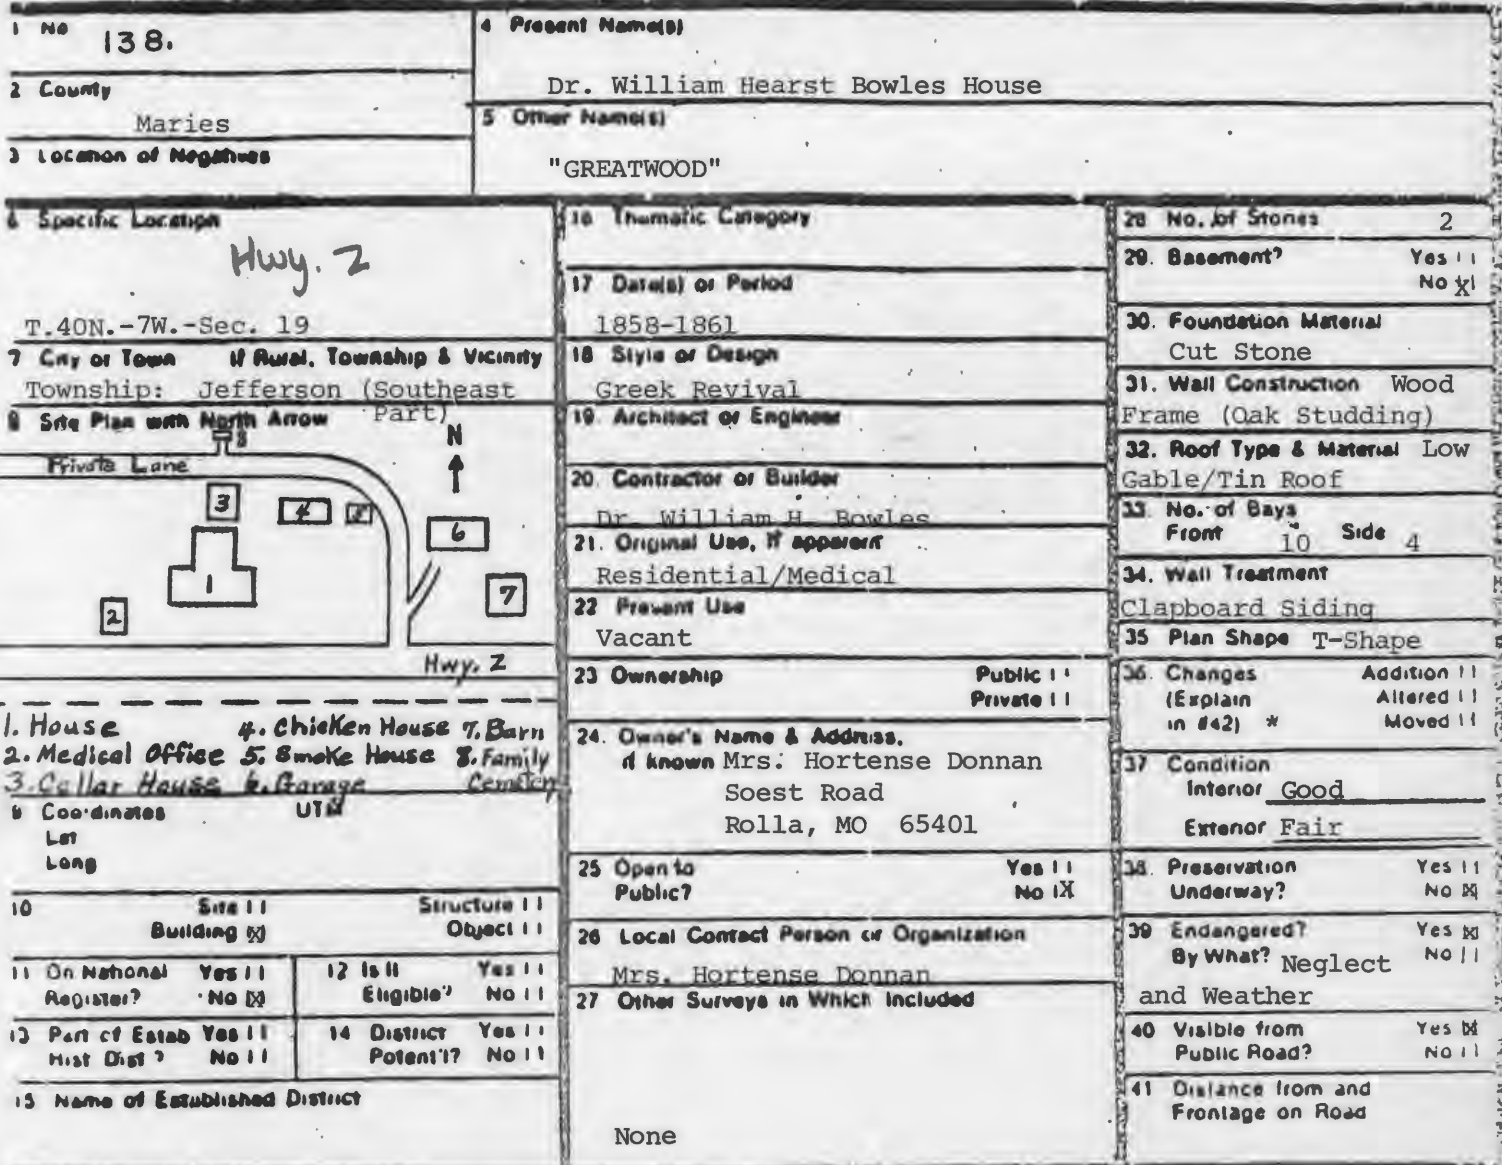 1 No 138.
4 Present Name(s)
Dr. William Hearst Bowles House
2 County
Maries
5 Other Name(s)
"GREATWOOD"
3 Location of Negatives
6 Specific Location
Hwy. Z
T.40N.-7W.-Sec. 19
7 City or Town If Rural, Township & Vicinity
Township: Jefferson (Southeast
Part)
8 Site Plan with North Arrow
N
8
Private Lane
3
4
5
6
1
7
2
Hwy. Z
1. House 4. Chicken House 7. Barn
2. Medical Office 5. Smoke House 8. Family
3. Cellar House 6. Garage Cemetery
9 Coordinates UTM
Lat
Long
10 Site | | Structure | |
Building |X| Object | |
11 On National Yes | | 12 Is It Yes | |
Register? No |X| Eligible? No | |
13 Part of Estab Yes | | 14 District Yes | |
Hist Dist? No | | Potent'l? No | |
15 Name of Established District
16 Thematic Category
17 Date(s) or Period
1858-1861
18 Style or Design
Greek Revival
19. Architect or Engineer
20. Contractor or Builder
Dr. William H. Bowles
21. Original Use, if apparent
Residential/Medical
22 Present Use
Vacant
23 Ownership Public | |
Private | |
24. Owner's Name & Address,
if known Mrs. Hortense Donnan
Soest Road
Rolla, MO 65401
25 Open to Yes | |
Public? No |X
26 Local Contact Person or Organization
Mrs. Hortense Donnan
27 Other Surveys in Which Included
None
28 No. of Stories 2
29. Basement? Yes | |
No X|
30. Foundation Material
Cut Stone
31. Wall Construction Wood
Frame (Oak Studding)
32. Roof Type & Material Low
Gable/Tin Roof
33. No. of Bays
Front 10 Side 4
34. Wall Treatment
Clapboard Siding
35 Plan Shape T-Shape
36. Changes Addition | |
(Explain Altered | |
in #42) * Moved | |
37 Condition
Interior Good
Exterior Fair
38. Preservation Yes | |
Underway? No |X|
39 Endangered? Yes |X|
By What? Neglect No | |
and Weather
40 Visible from Yes |X|
Public Road? No | |
41 Distance from and
Frontage on Road